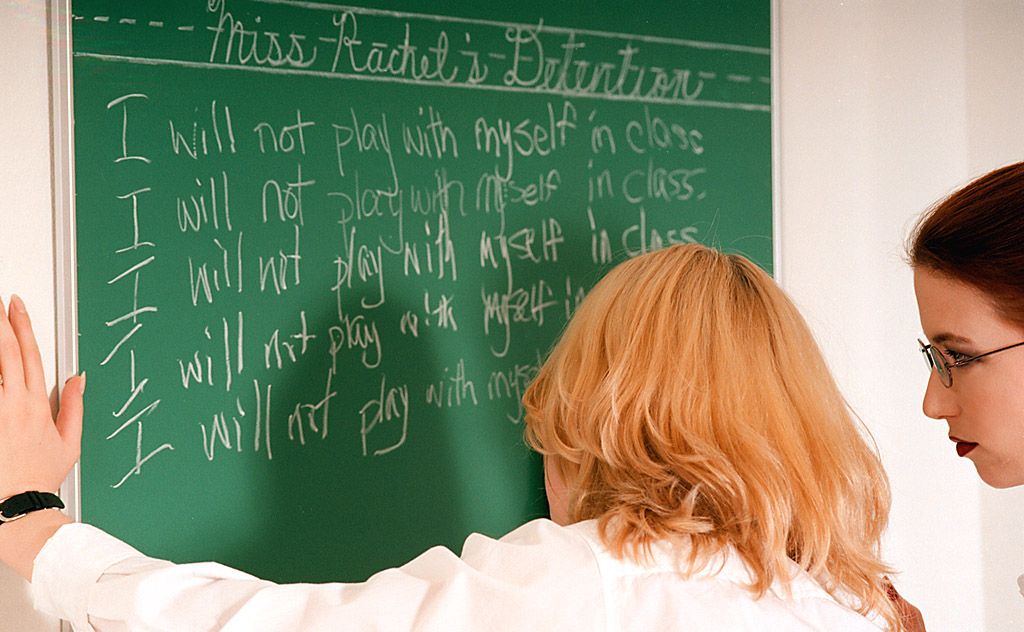 Miss Rachel's Detention
I will not play with myself in class
I will not play with myself in class.
I will not play with myself in class
I will not play with myself in
I will not play with